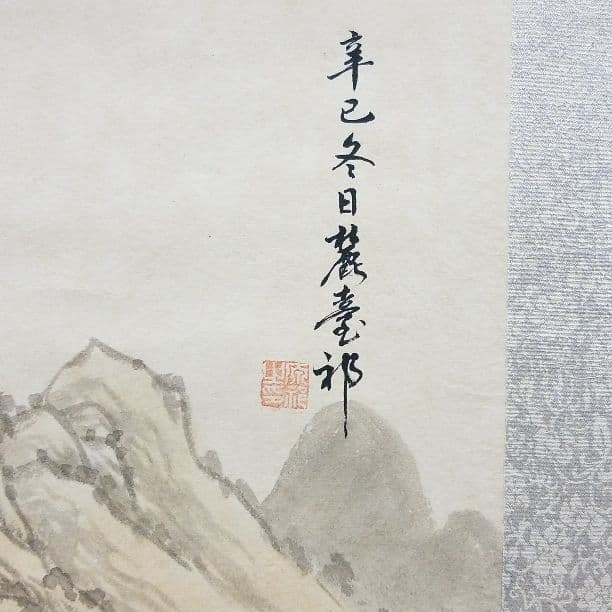 辛巳冬日麓臺祁